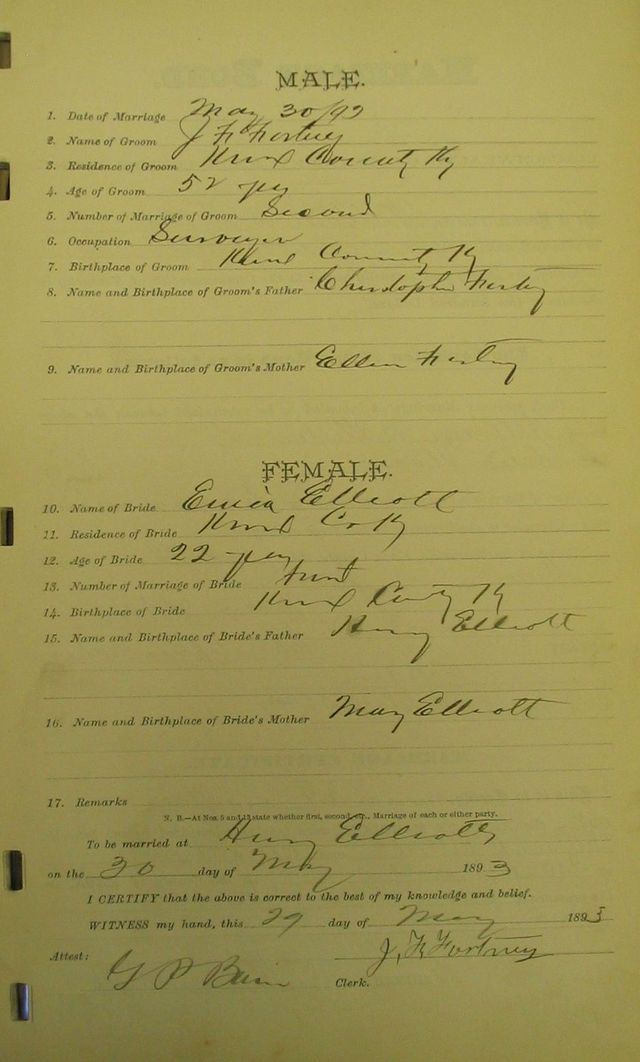 MALE.
1. Date of Marriage May 30/92
2. Name of Groom J F Fortney
3. Residence of Groom Knox County Ky
4. Age of Groom 52
5. Number of Marriage of Groom Second
6. Occupation Surveyor
7. Birthplace of Groom Knox County Ky
8. Name and Birthplace of Groom's Father Christopher Fortney
9. Name and Birthplace of Groom's Mother Ellen Fortney
FEMALE.
10. Name of Bride Elliott
11. Residence of Bride Knox Co Ky
12. Age of Bride 22
13. Number of Marriage of Bride First
14. Birthplace of Bride Knox County Ky
15. Name and Birthplace of Bride's Father Henry Elliott
16. Name and Birthplace of Bride's Mother Mary Elliott
17. Remarks
N. B.—At Nos. 5 and 13 state whether first, second, etc., Marriage of each or either party.
To be married at Henry Elliotts
on the 30 day of May 1893
I CERTIFY that the above is correct to the best of my knowledge and belief.
WITNESS my hand, this 29 day of May 1893
J, F, Fortney
Attest:
G P Clerk.